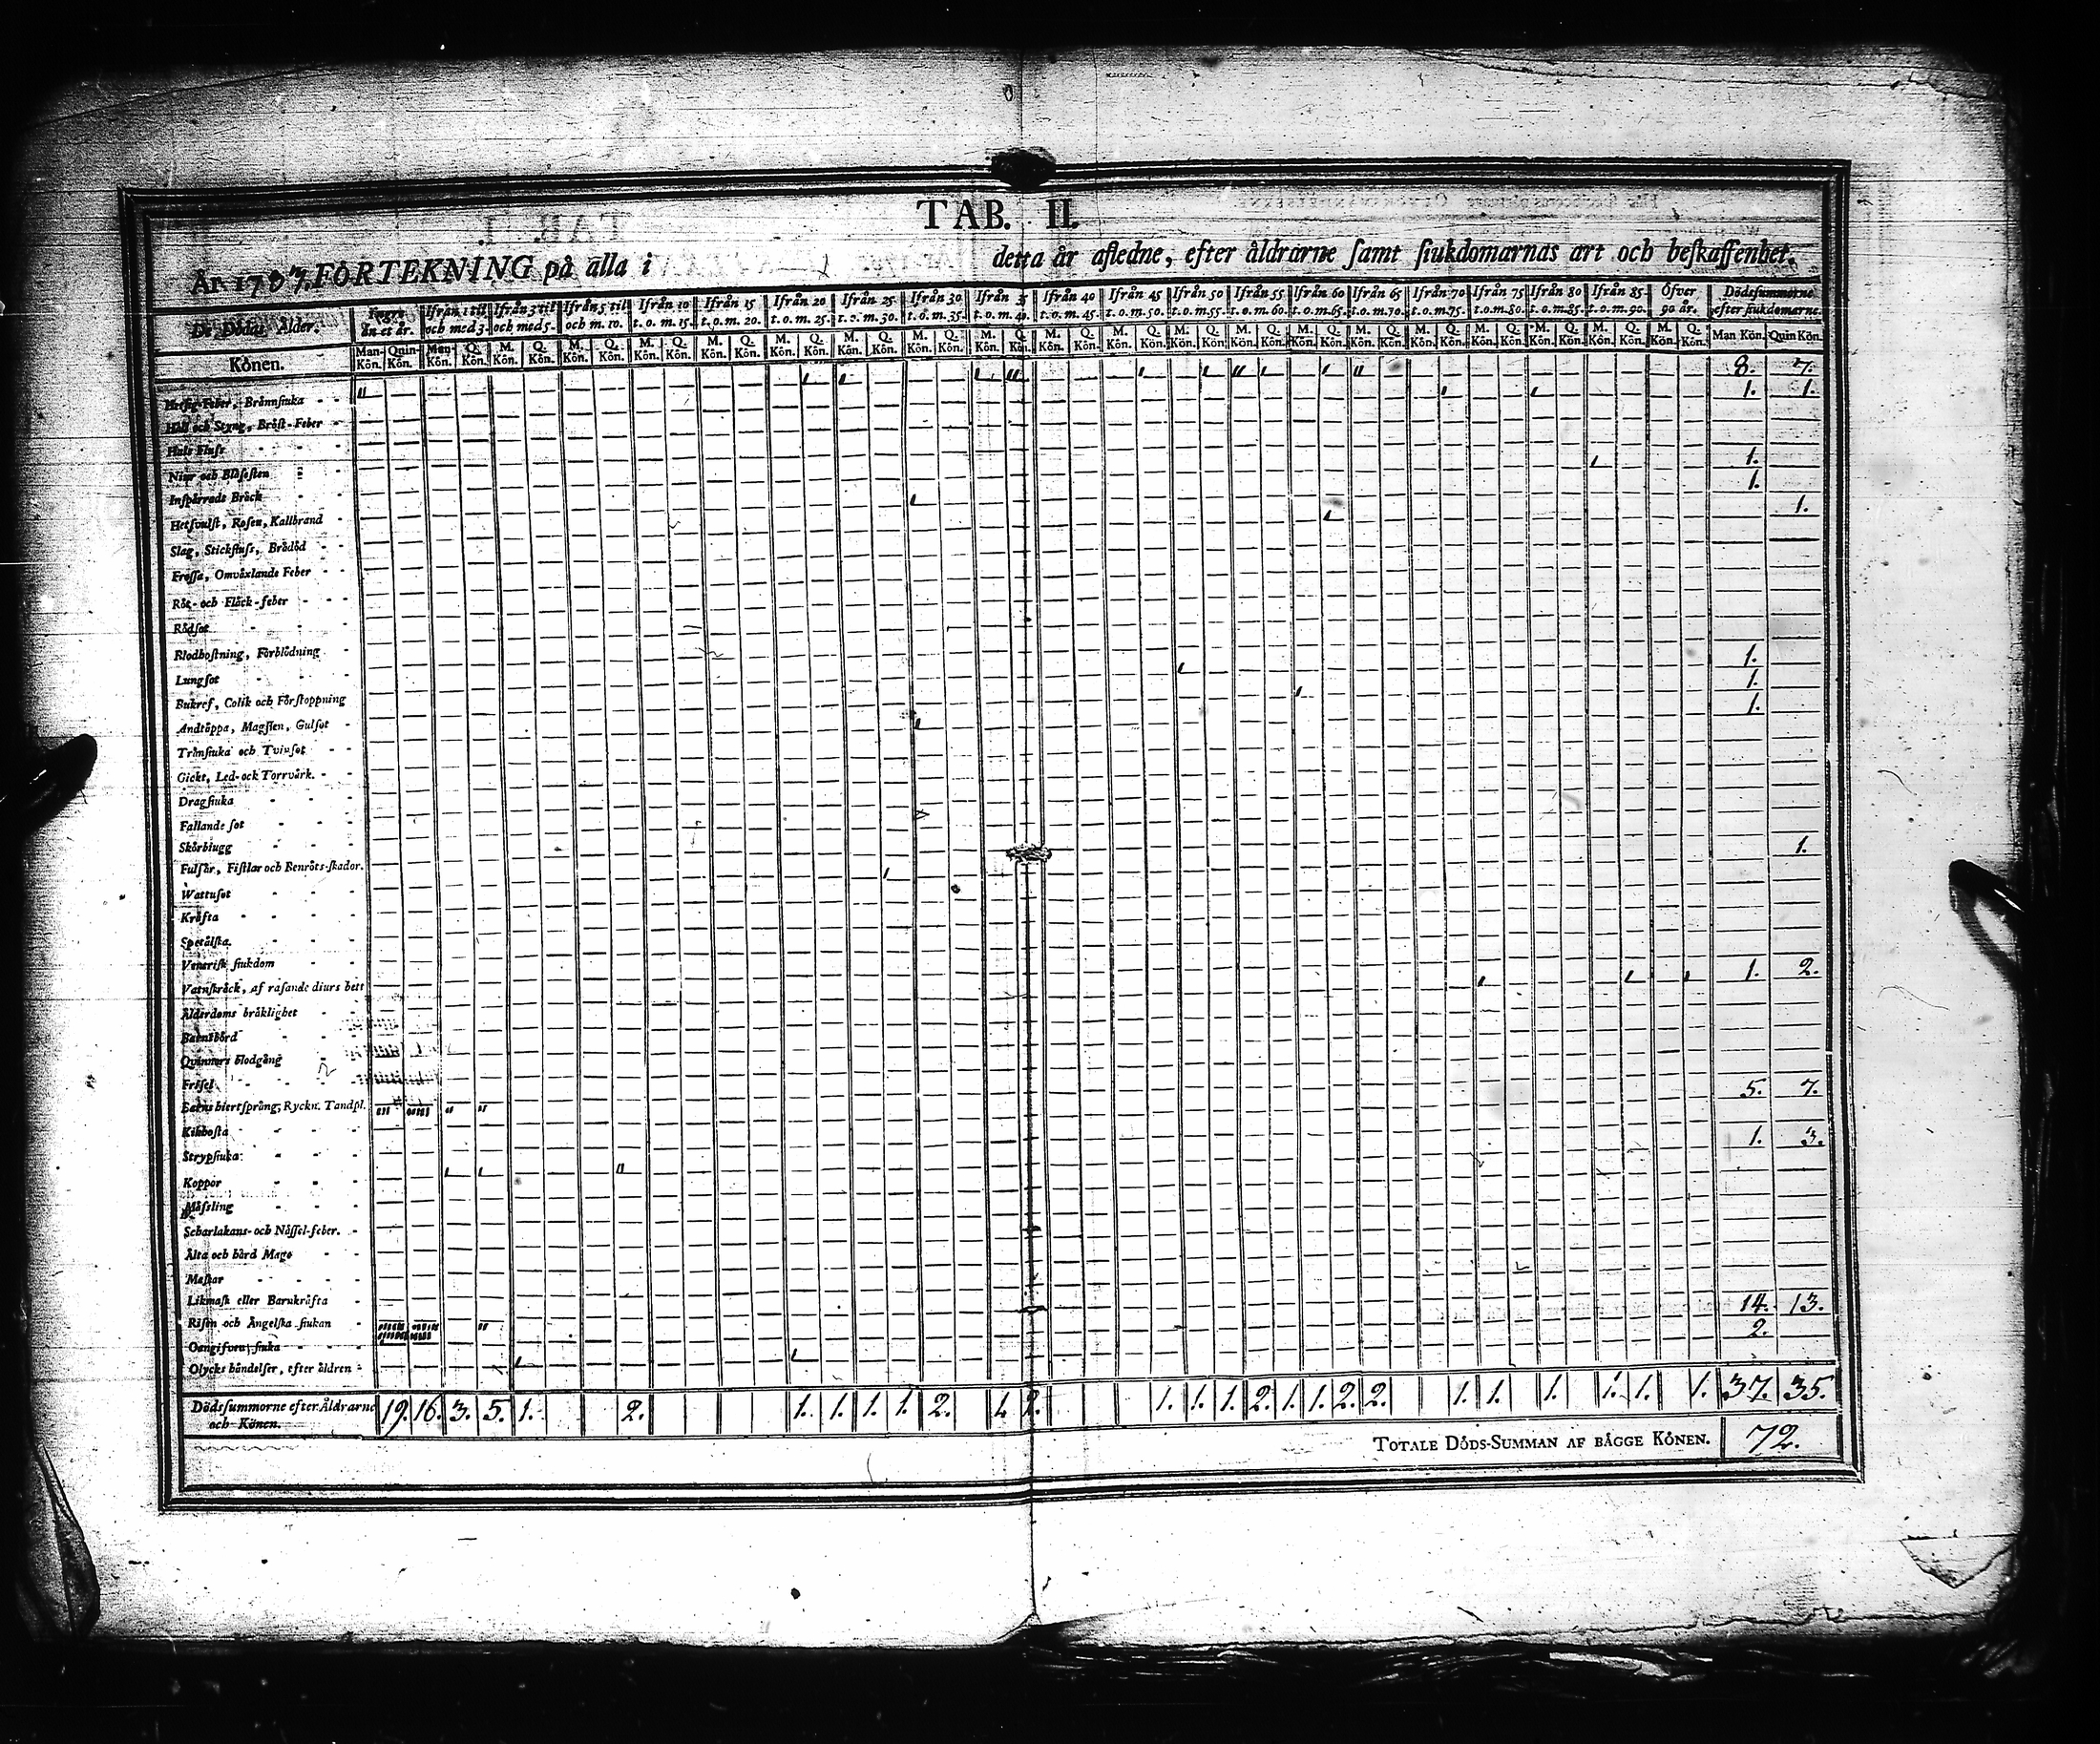 TAB. II.
År 1787. FÖRTEKNING på alla i detta år afledne, efter åldrarne samt siukdomarnas art och beskaffenhet.
De Dödas Ålder. Yngre än et år. Ifrån 1 til och med 3. Ifrån 3 til och med 5. Ifrån 5 til och m. 10. Ifrån 10 t. o. m. 15. Ifrån 15 t. o. m. 20. Ifrån 20 t. o. m. 25. Ifrån 25 t. o. m. 30. Ifrån 30 t. o. m. 35. Ifrån 35 t. o. m. 40. Ifrån 40 t. o. m. 45. Ifrån 45 t. o. m. 50. Ifrån 50 t. o. m. 55. Ifrån 55 t. o. m. 60. Ifrån 60 t. o. m. 65. Ifrån 65 t. o. m. 70. Ifrån 70 t. o. m. 75. Ifrån 75 t. o. m. 80. Ifrån 80 t. o. m. 85. Ifrån 85 t. o. m. 90. Öfver 90 år. Dödssummorne efter siukdomarne.
Könen. Man-Kön. Quin-Kön. Man-Kön. Q. Kön. M. Kön. Q. Kön. M. Kön. Q. Kön. M. Kön. Q. Kön. M. Kön. Q. Kön. M. Kön. Q. Kön. M. Kön. Q. Kön. M. Kön. Q. Kön. M. Kön. Q. Kön. M. Kön. Q. Kön. M. Kön. Q. Kön. M. Kön. Q. Kön. M. Kön. Q. Kön. M. Kön. Q. Kön. M. Kön. Q. Kön. M. Kön. Q. Kön. M. Kön. Q. Kön. M. Kön. Q. Kön. M. Kön. Q. Kön. M. Kön. Q. Kön. Man Kön. Quin Kön.
Hetsig-Feber, Brännsiuka 8. 7.
Håll och Styng, Bröst-Feber 1. 1.
Hals Fluss
Niur och Blåsesten
Inspärrade Bråck 1.
Hetsvulst, Rosen, Kallbrand 1.
Slag, Stickfluss, Brådöd 1.
Frossa, Omväxlande Feber
Röt- och Fläck-feber
Rödsot
Blodhostning, Förblödning
Lungsot 1.
Bukref, Colik och Förstoppning 1.
Andtäppa, Magsien, Gulsot 1.
Trånsiuka och Tvinsot
Gickt, Led- och Torrvärk.
Dragsiuka
Fallande sot
Skörbiugg
Fulsår, Fistlar och Benröts-skador. 1.
Wattusot
Kräfta
Spetälska
Venerisk siukdom
Vatnskräck, af rasande diurs bett 1. 2.
Ålderdoms bräklighet
Barnsbörd
Qvinnors blodgång
Frisel
Barns hiertsprång, Ryckn. Tandpl. 5. 7.
Kikhosta
Strypsiuka 1. 3.
Koppor
Mässling
Scharlakans- och Nässel-feber.
Älta och hård Mage
Maskar
Likmask eller Barnkräfta
Risen och Ängelska siukan 14. 13.
Oangifven siuka 2.
Olycks händelser, efter åldren
Dödssummorne efter Åldrarne och Könen. 19. 16. 3. 5. 1. 2. 1. 1. 1. 1. 2. 1. 2. 1. 1. 1. 2. 1. 1. 2. 2. 1. 1. 1. 1. 1. 1. 37. 35.
TOTALE DÖDS-SUMMAN AF BÄGGE KÖNEN. 72.